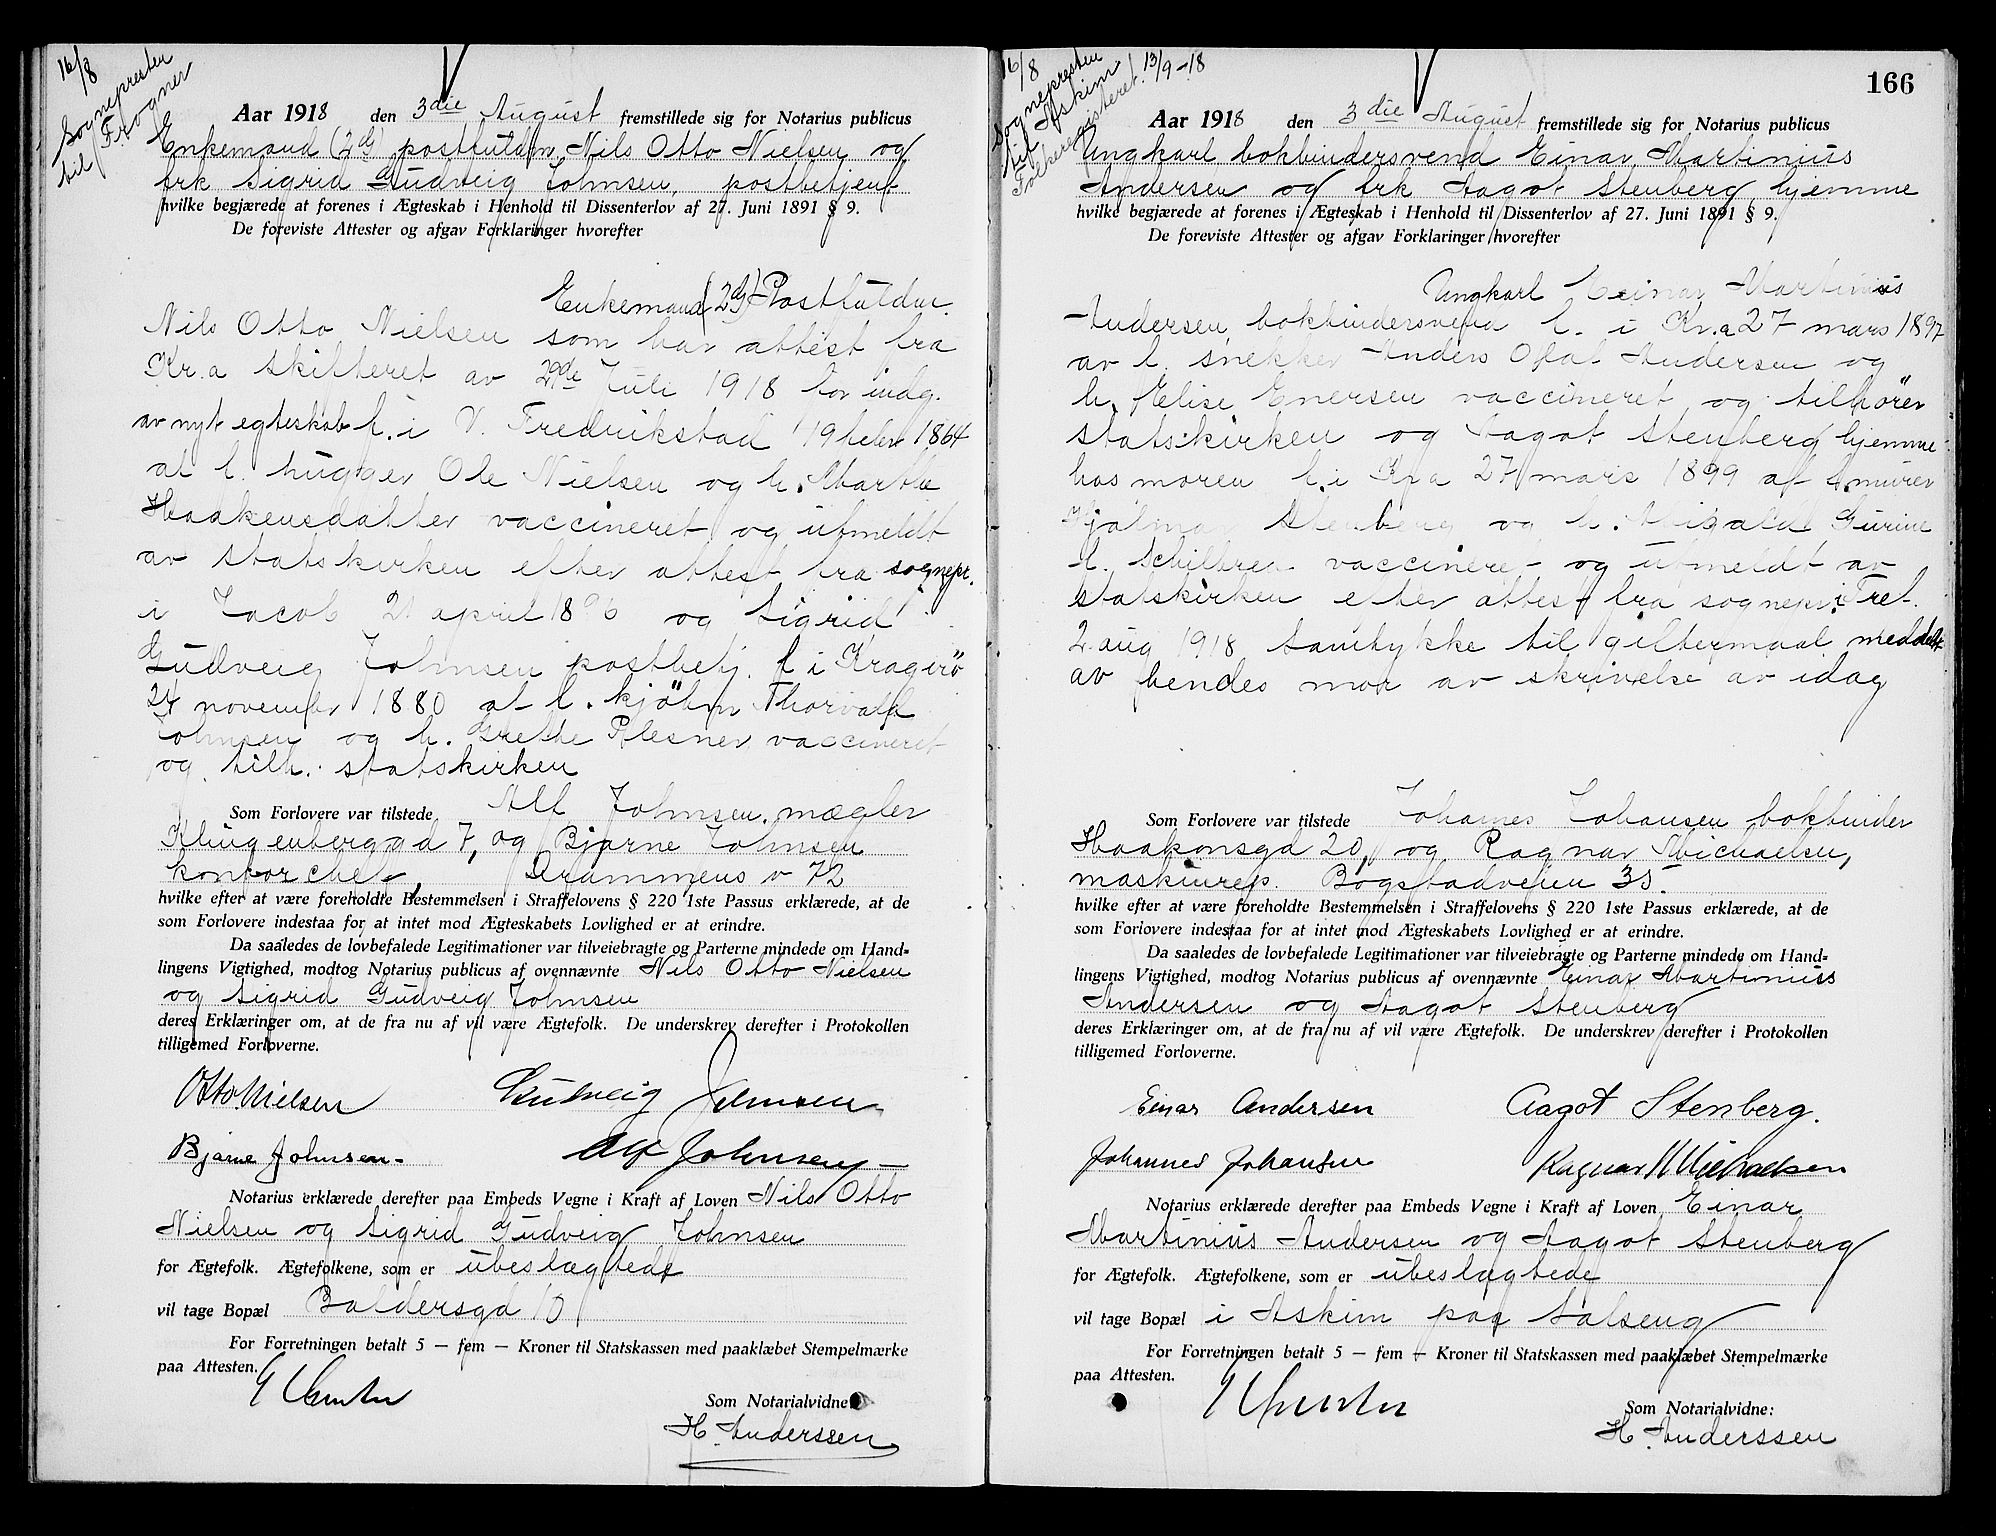 16/8
Sognepresten
til Frogner
Aar 1918 den 3die August fremstillede sig for Notarius publicus
Enkemand (2dg) postfuldm Nils Otto Nielsen og
frk Sigrid Gudveig Johnsen, postbetjent
hvilke begjærede at forenes i Ægteskab i Henhold til Dissenterlov af 27. Juni 1891 § 9.
De foreviste Attester og afgav Forklaringer hvorefter
Enkemand (2dg) Postfuldm.
Nils Otto Nielsen som har attest fra
Kr.a skifteret av 29de Juli 1918 for indg.
av nyt egteskab f. i V. Fredrikstad 19 febr 1864
af f. hugger Ole Nielsen og h. Marthe
Haakensdatter vaccineret og utmeldt
av statskirken efter attest fra sognepr.
i Jacob 21 april 1896 og Sigrid
Gudveig Johnsen postbetj. f i Kragerö
24 november 1880 af f. kjøbm Thorvald
Johnsen og h. Grethe Plesner vaccineret
og tilh. statskirken
Som Forlovere var tilstede Alf Johnsen, mægler
Klingenberggd 7, og Bjarne Johnsen
kontorchef, Drammens v 72
hvilke efter at være foreholdte Bestemmelsen i Straffelovens § 220 1ste Passus erklærede, at de
som Forlovere indestaa for at intet mod Ægteskabets Lovlighed er at erindre.
Da saaledes de lovbefalede Legitimationer var tilveiebragte og Parterne mindede om Hand-
lingens Vigtighed, modtog Notarius publicus af ovennævnte Nils Otto Nielsen
og Sigrid Gudveig Johnsen
deres Erklæringer om, at de fra nu af vil være Ægtefolk. De underskrev derefter i Protokollen
tilligemed Forloverne.
Otto Nielsen Gudveig Johnsen
Bjarne Johnsen- Alf Johnsen
Notarius erklærede derefter paa Embeds Vegne i Kraft af Loven Nils Otto
Nielsen og Sigrid Gudveig Johnsen
for Ægtefolk. Ægtefolkene, som er ubeslægtede
vil tage Bopæl Baldersgd 10
For Forretningen betalt 5 — fem — Kroner til Statskassen med paaklæbet Stempelmærke
paa Attesten.
Som Notarialvidne
H. Anderssen
16/8
Sognepresten
til Askim
Folkeregisteret 13/9-18
166
Aar 1918 den 3die August fremstillede sig for Notarius publicus
Ungkarl bokbindersvend Einar Martinius
Andersen og frk Aagot Stenberg hjemme
hvilke begjærede at forenes i Ægteskab i Henhold til Dissenterlov af 27. Juni 1891 § 9.
De foreviste Attester og afgav Forklaringer hvorefter
Ungkarl Einar Martinius
Andersen bokbindersvend f. i Kr.a 27 mars 1897
av f. snekker Anders Olaf Andersen og
h. Elise Enersen vaccineret og tilhörer
statskirken og Aagot Stenberg hjemme
hos moren f. i Kr.a 27 mars 1899 af f. murer
Hjalmar Stenberg og h. Gurine
f. vaccineret og utmeldt av
statskirken efter attest fra sognepr. i Tref.
2. aug 1918 samtykke til giftermaal meddelt
av hendes mor av skrivelse av idag
Som Forlovere var tilstede Johannes Johansen bokbinder
Haakonsgd 20, og Ragnar Michaelsen,
maskinrep. Bogstadveien 35.
hvilke efter at være foreholdte Bestemmelsen i Straffelovens § 220 1ste Passus erklærede, at de
som Forlovere indestaa for at intet mod Ægteskabets Lovlighed er at erindre.
Da saaledes de lovbefalede Legitimationer var tilveiebragte og Parterne mindede om Hand-
lingens Vigtighed, modtog Notarius publicus af ovennævnte Einar Martinius
Andersen og Aagot Stenberg
deres Erklæringer om, at de fra nu af vil være Ægtefolk. De underskrev derefter i Protokollen
tilligemed Forloverne.
Einar Andersen Aagot Stenberg.
Johannes Johansen Ragnar Michaelsen
Notarius erklærede derefter paa Embeds Vegne i Kraft af Loven Einar
Martinius Andersen og Aagot Stenberg
for Ægtefolk. Ægtefolkene, som er ubeslægtede
vil tage Bopæl i Askim paa Solseng
For Forretningen betalt 5 — fem — Kroner til Statskassen med paaklæbet Stempelmærke
paa Attesten.
Som Notarialvidne:
H. Anderssen